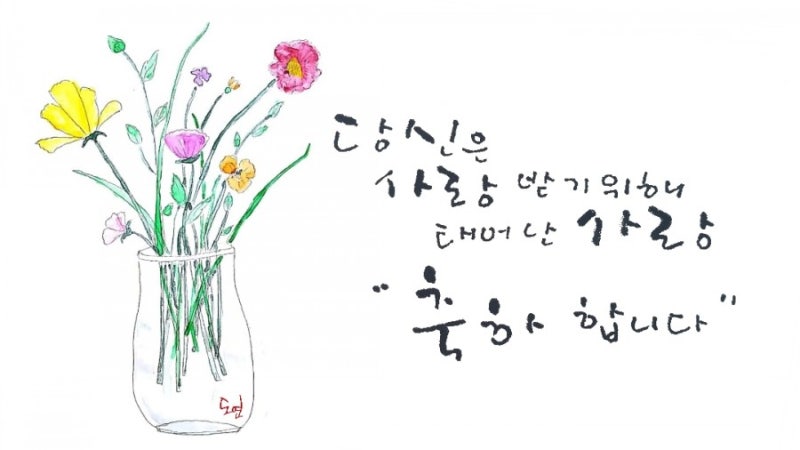 당신은
사랑 받기위해
태어난 사랑
"축하 합니다"
도연